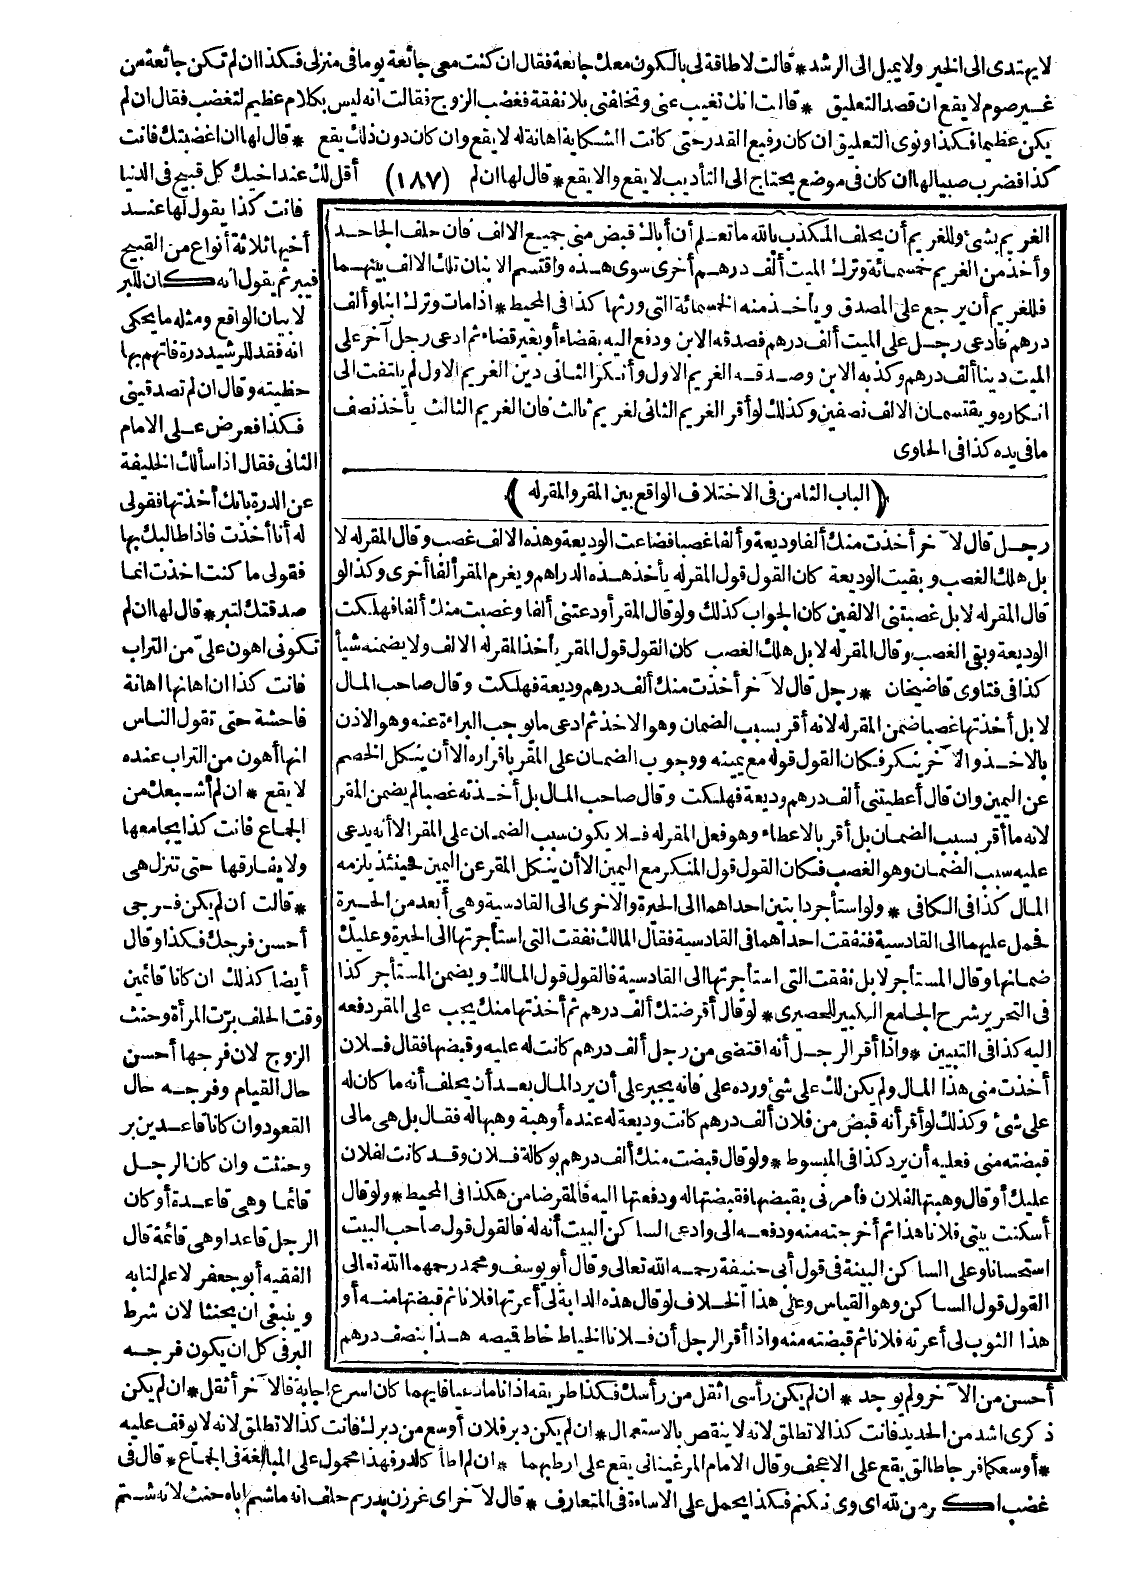 لا يهتدى الى الخير ولا يميل الى الرشد * قالت لا طاقة لى بالكون معك جائعة فقال ان كنت معى جائعة يوما فى منزلى فكذا ان لم تكن جائعة من
غير صوم لا يقع ان قصد التعليق * قالت انك تغيب عنى وتخلفنى بلا نفقة فغضب الزوج فقالت انه ليس بكلام عظيم لتغضب فقال ان لم
يكن عظيما فكذا ونوى التعليق ان كان رفيع القدر حتى كانت الشكاية اهانة له لا يقع وان كان دون ذلك يقع * قال لها ان اغضبتك فانت
كذا فضرب صبيا لها ان كان فى موضع يحتاج الى التأديب لا يقع والا يقع * قال لها ان لم (١٨٧) أقل لك عند اخيك كل قبيح فى الدنيا
فانت كذا يقول لها عند
أخيها ثلاثة أنواع من القبيح
فيبر ثم يقول انه كان للبر
لا بيان الواقع ومثله ما يحكى
انه فقد للرشيد درة فاتهم بها
حظيته وقال ان لم تصدقينى
فكذا فعرض على الامام
الثانى فقال اذا سألك الخليفة
عن الدرة بانك أخذتها فقولى
له أنا أخذت فاذا طالبك بها
فقولى ما كنت اخذت انما
صدقتك لتبر * قال لها ان لم
تكونى اهون علىّ من التراب
فانت كذا ان اهانها اهانة
فاحشة حتى تقول الناس
انها أهون من التراب عنده
لا يقع * ان لم أشبعك من
الجماع فانت كذا يجامعها
ولا يفارقها حتى تنزل هى
* قالت ان لم يكن فرجى
أحسن فرجك فكذا وقال
أيضا كذلك ان كانا قائمين
وقت الحلف برّت المرأة وحنث
الزوج لان فرجها أحسن
حال القيام وفرجه حال
القعود وان كانا قاعدين بر
وحنثت وان كان الرجل
قائما وهى قاعدة أو كان
الرجل قاعدا وهى قائمة قال
الفقيه أبو جعفر لا علم لنا به
وينبغى ان يحنثا لان شرط
البر فى كل ان يكون فرجه
الغريم بشئ وللغريم أن يحلف المكذب بالله ما تعلم أن أباك قبض منى جميع الالف فان حلف الجاحد
وأخذ من الغريم خمسمائة وترك الميت ألف درهم أخرى سوى هذه واقتسم الابنان تلك الالف بينهما
فللغريم أن يرجع على المصدق ويأخذ منه الخمسمائة التى ورثها كذا فى المحيط * اذا مات وترك ابنا وألف
درهم فادعى رجل على الميت ألف درهم فصدقه الابن ودفع اليه بقضاء أو بغير قضاء ثم ادعى رجل آخر على
الميت دينا ألف درهم وكذبه الابن وصدقه الغريم الاول وأنكر الثانى دين الغريم الاول لم يلتفت الى
انكاره ويقتسمان الالف نصفين وكذلك لو أقر الغريم الثانى لغريم ثالث فان الغريم الثالث يأخذ نصف
ما فى يده كذا فى الحاوى
﴿ الباب الثامن فى الاختلاف الواقع بين المقر والمقر له ﴾
رجل قال لآخر أخذت منك ألفا وديعة وألفا غصبا فضاعت الوديعة وهذه الالف غصب وقال المقر له لا
بل هلك الغصب وبقيت الوديعة كان القول قول المقر له يأخذ هذه الدراهم ويغرم المقر ألفا أخرى وكذا لو
قال المقر له لا بل غصبتنى الالفين كان الجواب كذلك ولو قال المقر أودعتنى ألفا وغصبت منك ألفا فهلكت
الوديعة وبقى الغصب وقال المقر له لا بل هلك الغصب كان القول قول المقر يأخذ المقر له الالف ولا يضمنه شيأ
كذا فى فتاوى قاضيخان * رجل قال لآخر أخذت منك ألف درهم وديعة فهلكت وقال صاحب المال
لا بل أخذتها غصبا ضمن المقر له لانه أقر بسبب الضمان وهو الاخذ ثم ادعى ما يوجب البراءة عنه وهو الاذن
بالاخذ والآخر ينكر فكان القول قوله مع يمينه ووجوب الضمان على المقر باقراره الا أن ينكل الخصم
عن اليمين وان قال أعطيتنى ألف درهم وديعة فهلكت وقال صاحب المال بل أخذته غصبا لم يضمن المقر
لانه ما أقر بسبب الضمان بل أقر بالاعطاء وهو فعل المقر له فلا يكون سبب الضمان على المقر الا أنه يدعى
عليه سبب الضمان وهو الغصب فكان القول قول المنكر مع اليمين الا أن ينكل المقر عن اليمين فحينئذ يلزمه
المال كذا فى الكافى * ولو استأجر دابتين احداهما الى الحيرة والاخرى الى القادسية وهى أبعد من الحيرة
فحمل عليهما الى القادسية فنفقت احداهما فى القادسية فقال المالك نفقت التى استأجرتها الى الحيرة وعليك
ضمانها وقال المستأجر لا بل نفقت التى استأجرتها الى القادسية فالقول قول المالك ويضمن المستأجر كذا
فى التحرير شرح الجامع الكبير للحصيرى * لو قال أقرضتك ألف درهم ثم أخذتها منك يجب على المقر دفعه
اليه كذا فى التبيين * واذا أقر الرجل أنه اقتضى من رجل ألف درهم كانت له عليه وقبضها فقال فلان
أخذت منى هذا المال ولم يكن لك على شئ ورده على فانه يجبر على أن يرد المال بعد أن يحلف أنه ما كان له
على شئ وكذلك لو أقر أنه قبض من فلان ألف درهم كانت وديعة له عنده أو هبة وهبها له فقال بل هى مالى
قبضته منى فعليه أن يرد كذا فى المبسوط * ولو قال قبضت منك ألف درهم بوكالة فلان وقد كانت لفلان
عليك أو قال وهبتها لفلان فأمرنى بقبضها فقبضتها له ودفعتها اليه فالمقر ضامن هكذا فى المحيط * ولو قال
أسكنت بيتى فلانا هذا ثم أخرجته منه ودفعه الى وادعى الساكن البيت أنه له فالقول قول صاحب البيت
استحسانا وعلى الساكن البينة فى قول أبى حنيفة رحمه الله تعالى وقال أبو يوسف ومحمد رحمهما الله تعالى
القول قول الساكن وهو القياس وعلى هذا الخلاف لو قال هذه الدابة لى أعرتها فلانا ثم قبضتها منه أو
هذا الثوب لى أعرته فلانا ثم قبضته منه واذا أقر الرجل أن فلانا الخياط خاط قميصه هذا بنصف درهم
أحسن من الآخر ولم يوجد * ان لم يكن رأسى اثقل من رأسك فكذا طريقه اذا ناما دعيا فايهما كان اسرع اجابة فالآخر أثقل * ان لم يكن
ذكرى اشد من الحديد فانت كذا لا تطلق لانه لا ينقص بالاستعمال * ان لم يكن دبر فلان أوسع من دبرك فانت كذا لا تطلق لانه لا يوقف عليه
* أوسعكما فرجا طالق يقع على الاعجف وقال الامام المرغينانى يقع على ارطبهما * ان لم اطأ كالدر فهذا محمول على المبالغة فى الجماع * قال فى
غضب اكر من لله اى وى نكنم فكذا يحمل على الاساءة فى المتعارف * قال لآخر اى غرزن پدرم حلف انه ما شتم اباه حنث لانه شتم